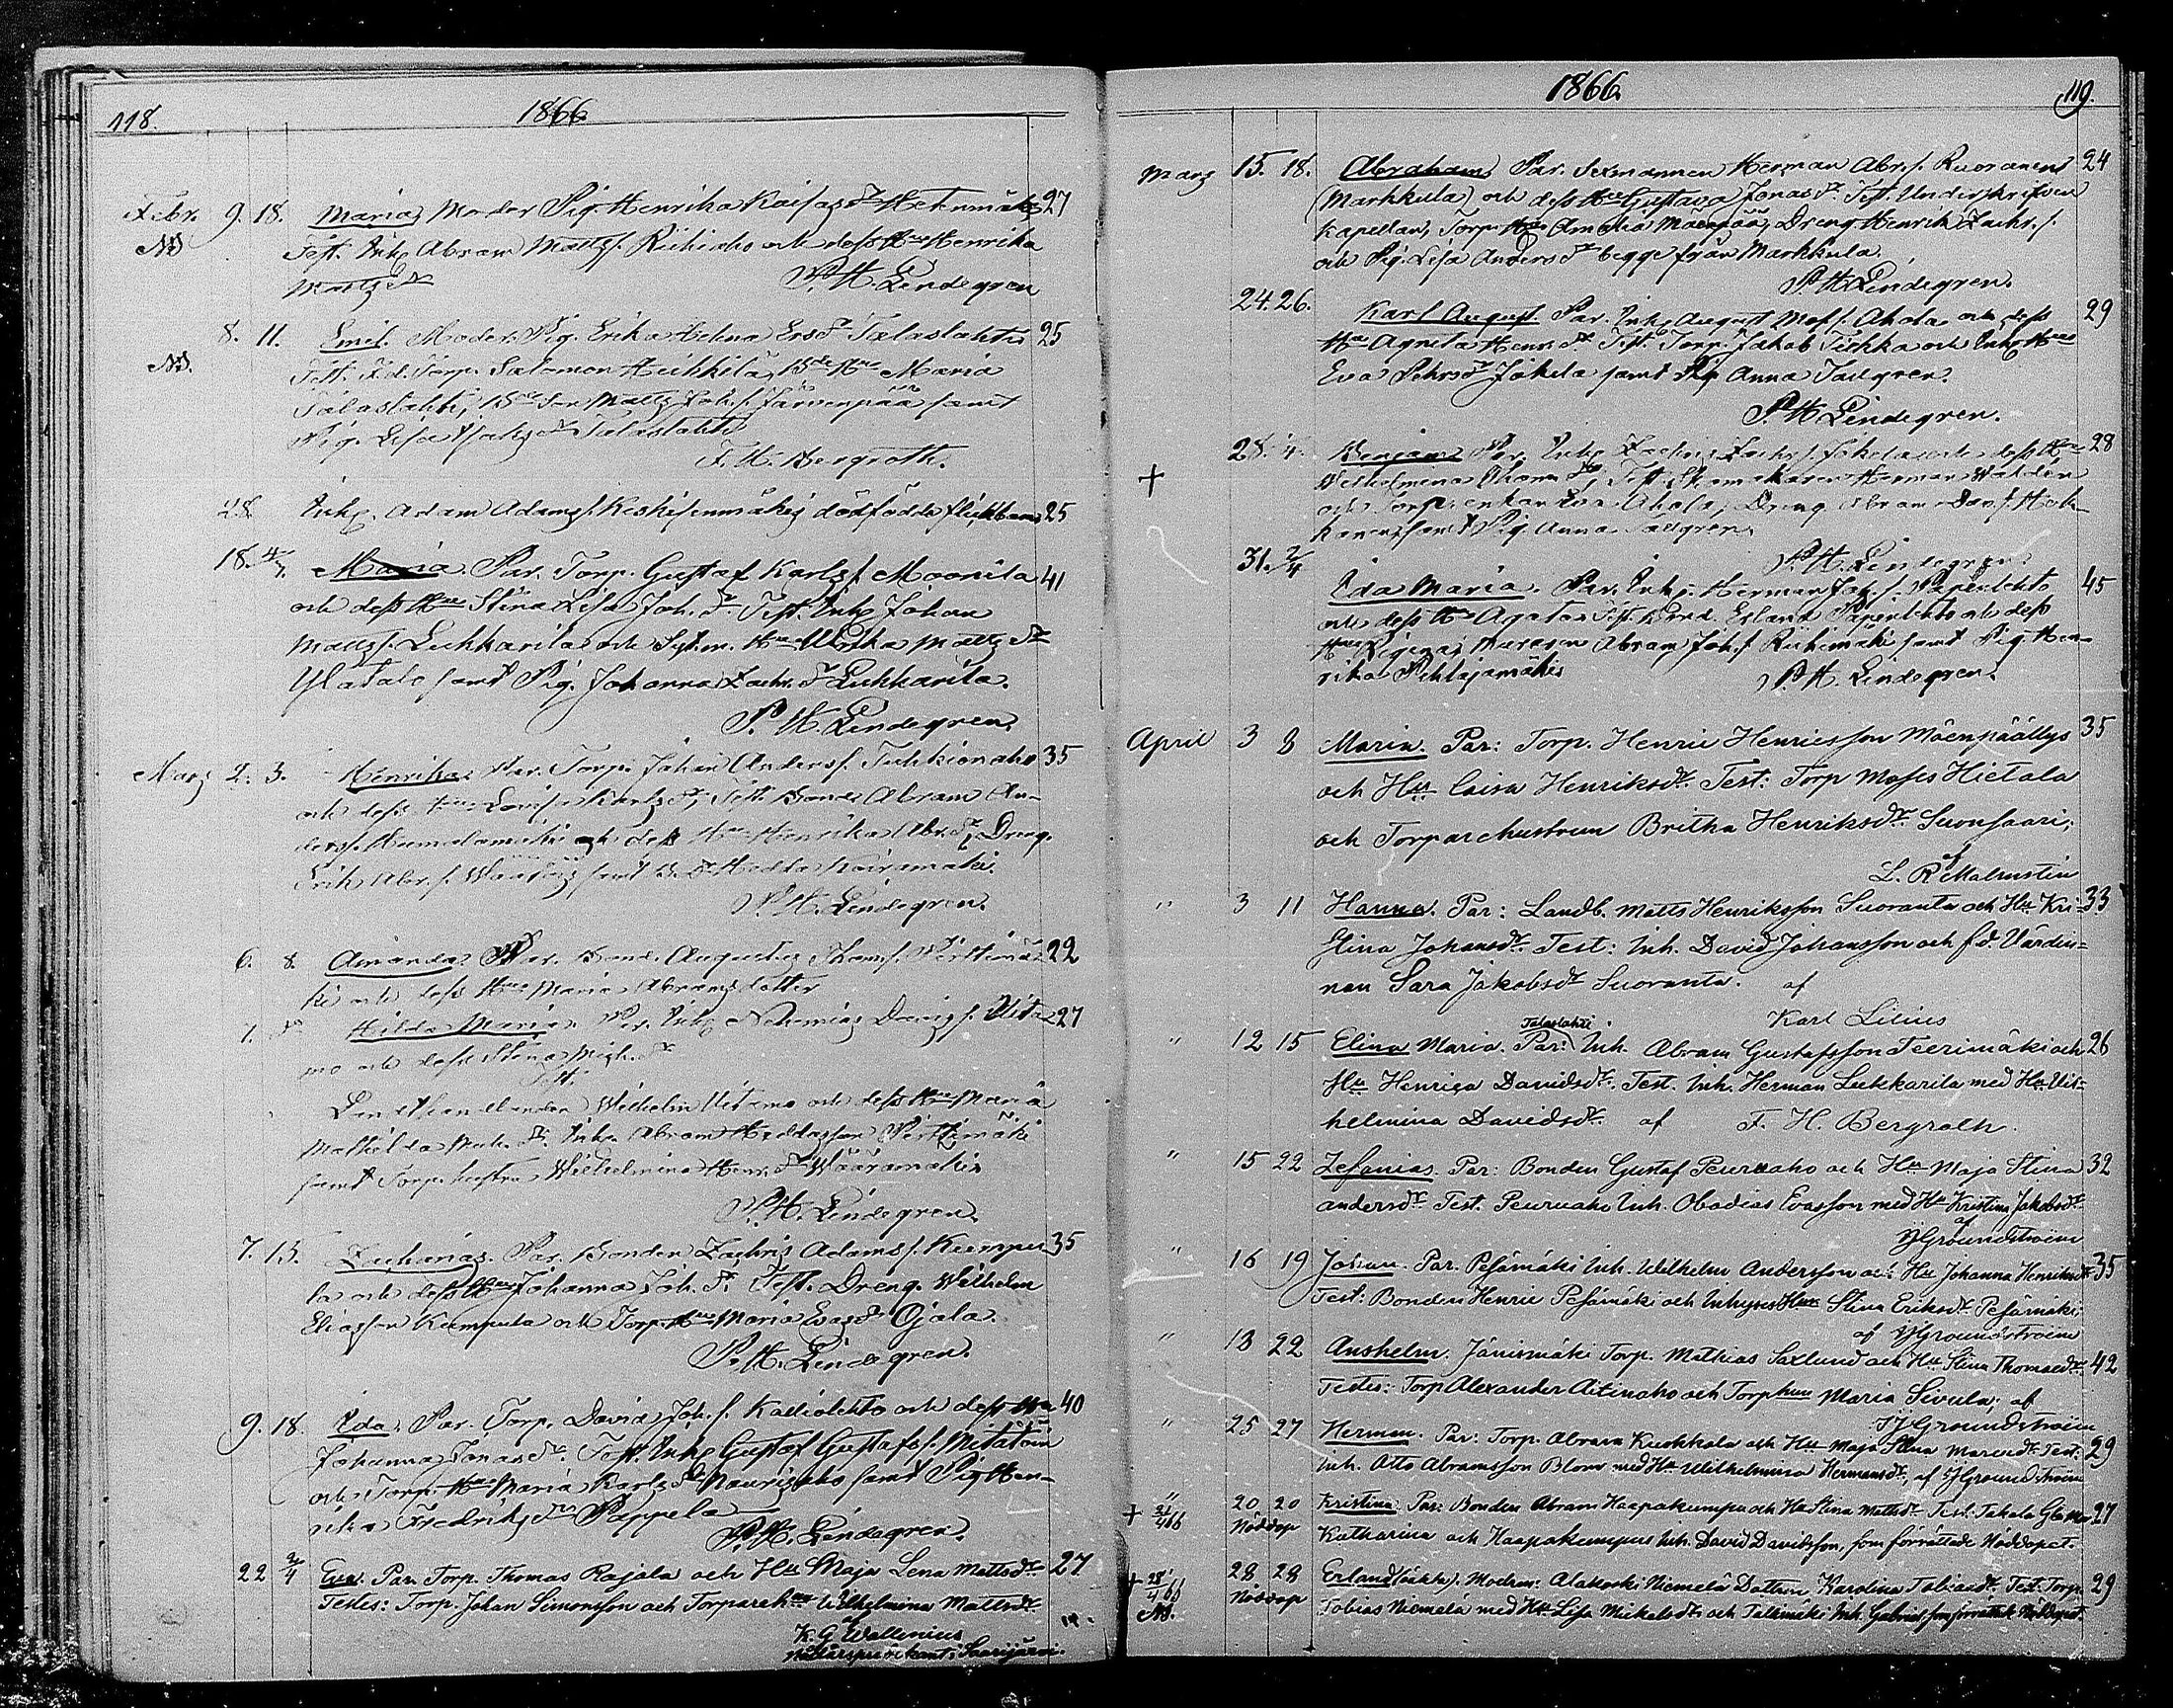 118.
1866.
Febr. 9. 18. Maria, Moder Pig. Henrika Kaisas dr Hetenmäki 27
Test. Inh. Abram Mattss. Riihiaho och dess Hu Henrika
Mattsdr
P. H. Lindegren
8. 11. Emil. Moder Pig. Erika Helena Ersdr Talaslahti 25
Test. Torp. Salomon Heikkilä, Maria
Talaslahti, Matts Joh. s. Järvenpää samt
Pig. Lisa Talaslahti
F. H. Bergroth.
28 Inh. Adam Adamss. Keskisenmäkis dödfödda flickbarn 25
18. 4/7. Maria. Par. Torp. Gustaf Karlss. Moonila 41
och dess Hu Stina Lisa Joh. dr. Test. Inh. Johan
Mattss. Lukkarila och Hu Ulrika Matts dr
Ylatalo samt Pig. Johanna Zachr. dr Lukkarila.
P. H. Lindegren.
Mars 2. 3. Henrika. Par. Torp. Johan Anderss. Tuhkionaho 35
och dess Hu Lovisa Karlsdr, Test. Bond. Abram An-
derss. Humalamäki och dess Hu Henrika Abr. dr, Dreng.
Erik Abr. s. samt Hedda
P. H. Lindegren.
6. 8. Amanda. Par. Bond. Augustus Thomss. Perttimä- 22
ki och dess Hu Maria Abrams dotter
1. Hilda Maria. Par. Inh. Nehemias Davis s. Uita- 27
mo och dess Stina Mich. dr
Test.
Wilhelm Uitamo och dess Hu Maria
Mathilda Inh. Abram Heddasson Perttimäki
samt Torp. hustru Wilhelmina Henr. dr Wääramäki
P. H. Lindegren.
7. 13. Zacharias. Par. Bonden Zachris Adams s. Kumpu- 35
la och dess Hu Johanna Joh. dr. Test. Dreng. Wilhelm
Eliasson Kumpula och Torp. Hu Maria Evasdr Ojala.
P. H. Lindegren.
9. 18. Ida, Par. Torp. David Joh. s. Kalliolehto och dess Hu 40
Johanna Jonas dr. Test. Inh. Gustaf Gustafs s.
och Torp. Hu Maria Karls dr Naurisaho samt Pig Hen-
rika Fredriks dr Pappela
P. H. Lindegren.
22 2/4 Eva. Par. Torp. Thomas Rajala och Hu Maja Lena Mattsdr 27
Testes: Torp. Johan Simonsson och Torpareh Wilhelmina Mattsdr
af
K. G. Wallenius
Nådårspredikant i Saarijärvi.
1866.
119.
Mars 15. 18. Abraham, Par. Sexmannen Herman Abr. s. Ruoranen 24
(Markkula) och dess Hu Gustava Jonas dr. Test. Underskrifven
Kapellan, Torp. Hu Amalia Mäenpää, Dreng. Henrik Zachr. s.
och Pig. Lisa Anders dr begge från Markkula.
P. H. Lindegren.
24. 26. Karl August. Par. Inh. August Mos s. Ahola och dess 29
Hu Agneta Henr. dr. Test. Torp. Jakob Tuhka och Inh. Hu
Eva Jokela samt Pig Anna Tallgren.
P. H. Lindegren.
+ 28. 4. Benjam. Par. Inh. Zachris Zachr. s. Jokela och dess Hu 28
Wilhelmina Thom. dr, Test. Skomakaren Herman Walden
och Torp. enkan Ahola, Dreng Abram
samt Pig. Anna Tallgren
P. H. Lindegren.
31. 2/4 Ida Maria. Par. Inh. Herman Jak. s. Papinlehto 45
och dess Hu Agata. Test. Bond. Erland Papinlehto och dess
Hu Regina, Muraren Abram Joh. s. Riihimäki samt Pig. Hen-
rika Pihlajamäki
P. H. Lindegren.
April 3 8 Maria. Par: Torp. Henric Henricsson Mäenpäällys 35
och Hu Caisa Henriksdr. Test: Torp Moses Hietala
och Torparehustrun Britha Henriksdr. Suonsaari;
af
L. R. Malmstén
" 3 11 Hanna. Par: Landb. Matts Henriksson Suoranta och Hu Kri- 33
stina Johansdr. Test: Inh. David Johansson och f.d. Värdin-
nan Sara Jakobsdr Suoranta. af
Karl Lilius
" 12 15 Elina Maria. Par: Talaslahti Inh. Abram Gustafsson Teerimäki och 26
Hu Henrica Davidsdr. Test. Inh. Herman Lukkarila med Hu Wil-
helmina Davidsdr. af F. H. Bergroth.
" 15 22 Zefanias. Par: Bonden Gustaf Peuruaho och Hu Maja Stina 32
andersdr. Test. Peuruaho Inh. Obadias Evasson med Hu Kristina Jakobsdr
af
Groundstroem
" 16 19 Johan. Par. Pesämäki Inh. Wilhelm Andersson och Hu Johanna Henriksdr 35
Test: Bonden Henric Pesämäki och Inhyses Hu Stina Eriksdr. Pesämäki;
af Groundstroem
" 13 22 Anshelm. Jänismäki Torp. Mathias Saxlund och Hu Stina Thomasdr. 42
Testes: Torp Alexander Aitinaho och Torphun Maria Sivula; af
Groundstroem
" 25 27 Herman. Par: Torp. Abram Kuokkala och Hu Maja Stina Marcusdr. Test: 29
Inh. Otto Abramsson Blom med Hu Wilhelmina Hermansdr; af Groundstroem
" 20 20 Kristina. Par: Bonden Abram Haapakumpu och Hu Stina Mattsdr. Test. 27
+ /4 66 Nöddop Katharina och Haapakumpus Inh. David Davidsson, som förrättade Nöddopet.
+ 28/4 66 28 28 Erland (oäkta). Modern: Alakoski Niemelä Dottern Karolina Tobiasdr. Test: Torp. 29
Nöddop Tobias Niemelä med Hu Lisa Mickelsdr. och Inh. Gabriel, som förrättade Nöddopet.